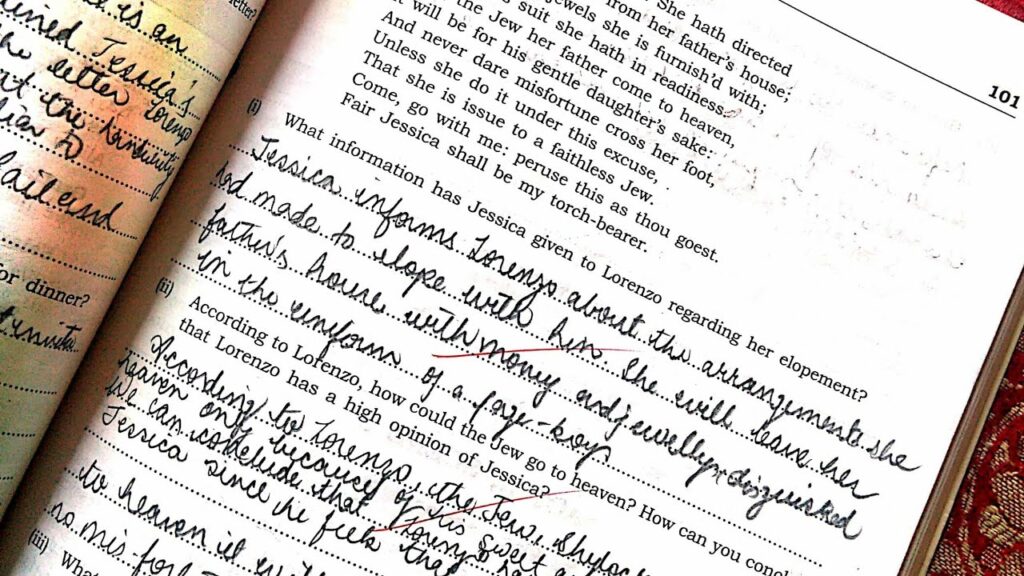 etter?
is an
Jessica's
letter Lorenzo
for dinner?
101
She hath directed
from her father's house;
jewels she is furnish'd with;
suit she hath in readiness.
the Jew her father come to heaven,
It will be for his gentle daughter's sake:
And never dare misfortune cross her foot,
Unless she do it under this excuse,
That she is issue to a faithless Jew.
Come, go with me: peruse this as thou goest.
Fair Jessica shall be my torch-bearer.
(i) What information has Jessica given to Lorenzo regarding her elopement?
Jessica informs Lorenzo about the arrangements she
had made to elope with him. She will leave her
father's house with money and jewelly disguished
in the uniform of a page-boy
(ii) According to Lorenzo, how could the Jew go to heaven? How can you concl
that Lorenzo has a high opinion of Jessica?
According to Lorenzo, the Jew, Shylock
heaven only because of his sweet
We can conclude that
Jessica since he feels that
to heaven it will
no mis-for
(iii) What